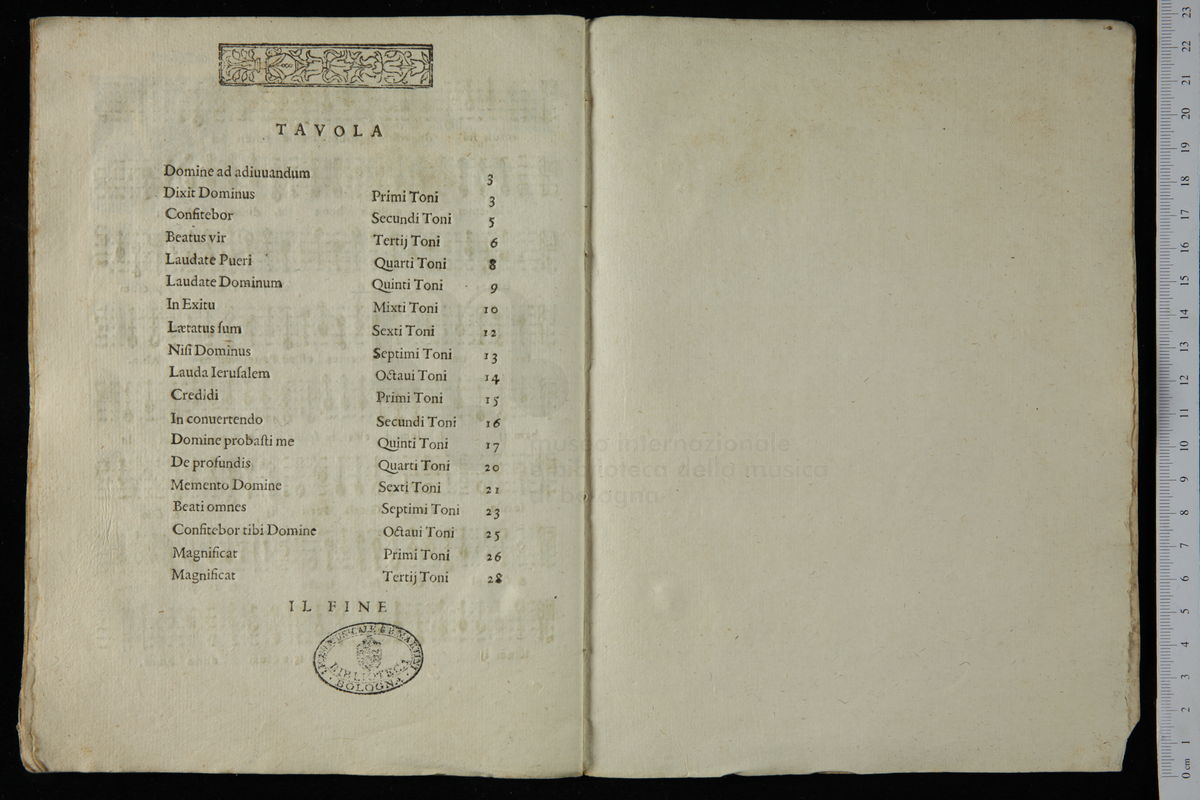 TAVOLA
Domine ad adiuuandum 3
Dixit Dominus Primi Toni 3
Confitebor Secundi Toni 5
Beatus vir Tertij Toni 6
Laudate Pueri Quarti Toni 8
Laudate Dominum Quinti Toni 9
In Exitu Mixti Toni 10
Lætatus ſum Sexti Toni 12
Niſi Dominus Septimi Toni 13
Lauda Ieruſalem Octaui Toni 14
Credidi Primi Toni 15
In conuertendo Secundi Toni 16
Domine probaſti me Quinti Toni 17
De profundis Quarti Toni 20
Memento Domine Sexti Toni 21
Beati omnes Septimi Toni 23
Confitebor tibi Domine Octaui Toni 25
Magnificat Primi Toni 26
Magnificat Tertij Toni 28
IL FINE
BIBLIOTECA
BOLOGNA
museo internazionale
e biblioteca della musica
di bologna
0 cm 1 2 3 4 5 6 7 8 9 10 11 12 13 14 15 16 17 18 19 20 21 22 23